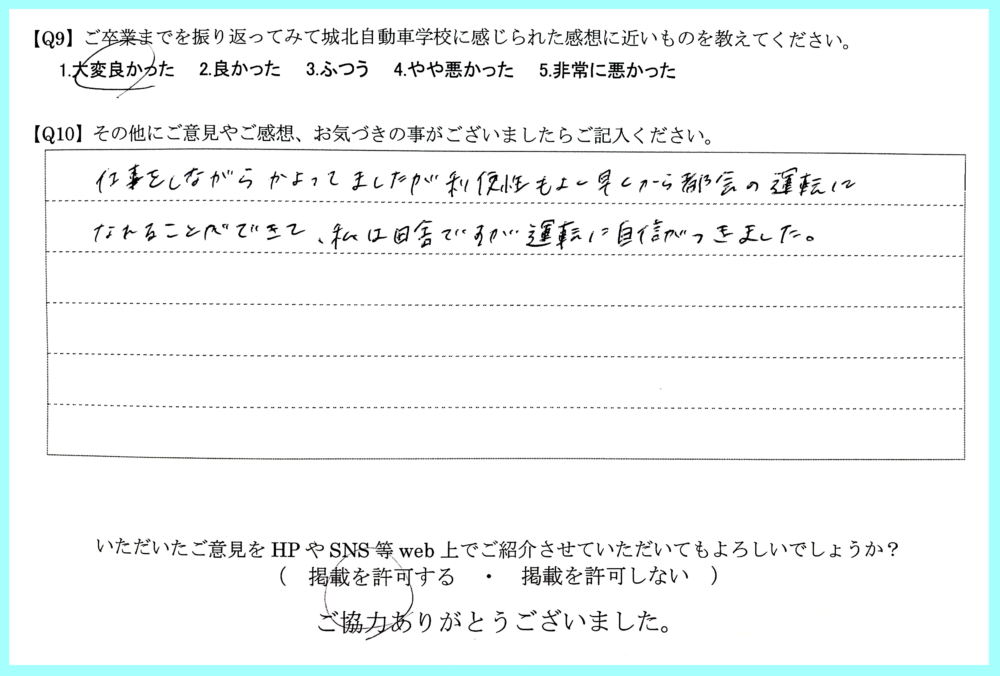 【Q9】ご卒業までを振り返ってみて城北自動車学校に感じられた感想に近いものを教えてください。
1.大変良かった 2.良かった 3.ふつう 4.やや悪かった 5.非常に悪かった
【Q10】その他にご意見やご感想、お気づきの事がございましたらご記入ください。
仕事をしながらかよってましたが利便性もよく早くから都会の運転に
なれることができて、私は田舎ですが運転に自信がつきました。
いただいたご意見をHPやSNS等web上でご紹介させていただいてもよろしいでしょうか？
（ 掲載を許可する ・ 掲載を許可しない ）
ご協力ありがとうございました。